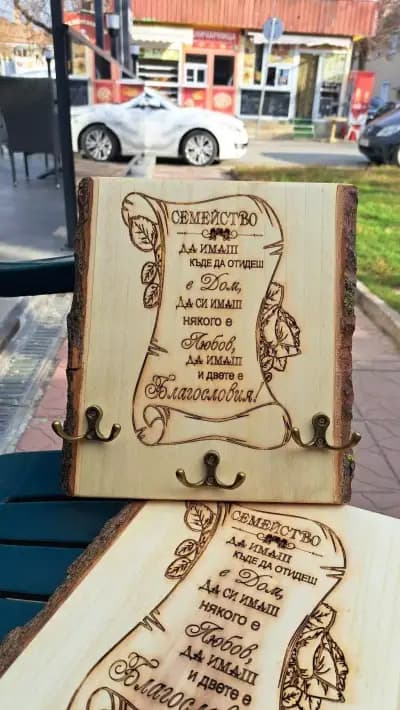 СЕМЕЙСТВО
ДА ИМАШ
КЪДЕ ДА ОТИДЕШ
е Дом,
ДА СИ ИМАШ
НЯКОГО Е
Любов,
ДА ИМАШ
И ДВЕТЕ Е
Благословия!
СЕМЕЙСТВО
ДА ИМАШ
КЪДЕ ДА ОТИДЕШ
е Дом,
ДА СИ ИМАШ
НЯКОГО Е
Любов,
ДА ИМАШ
И ДВЕТЕ Е
Благослови